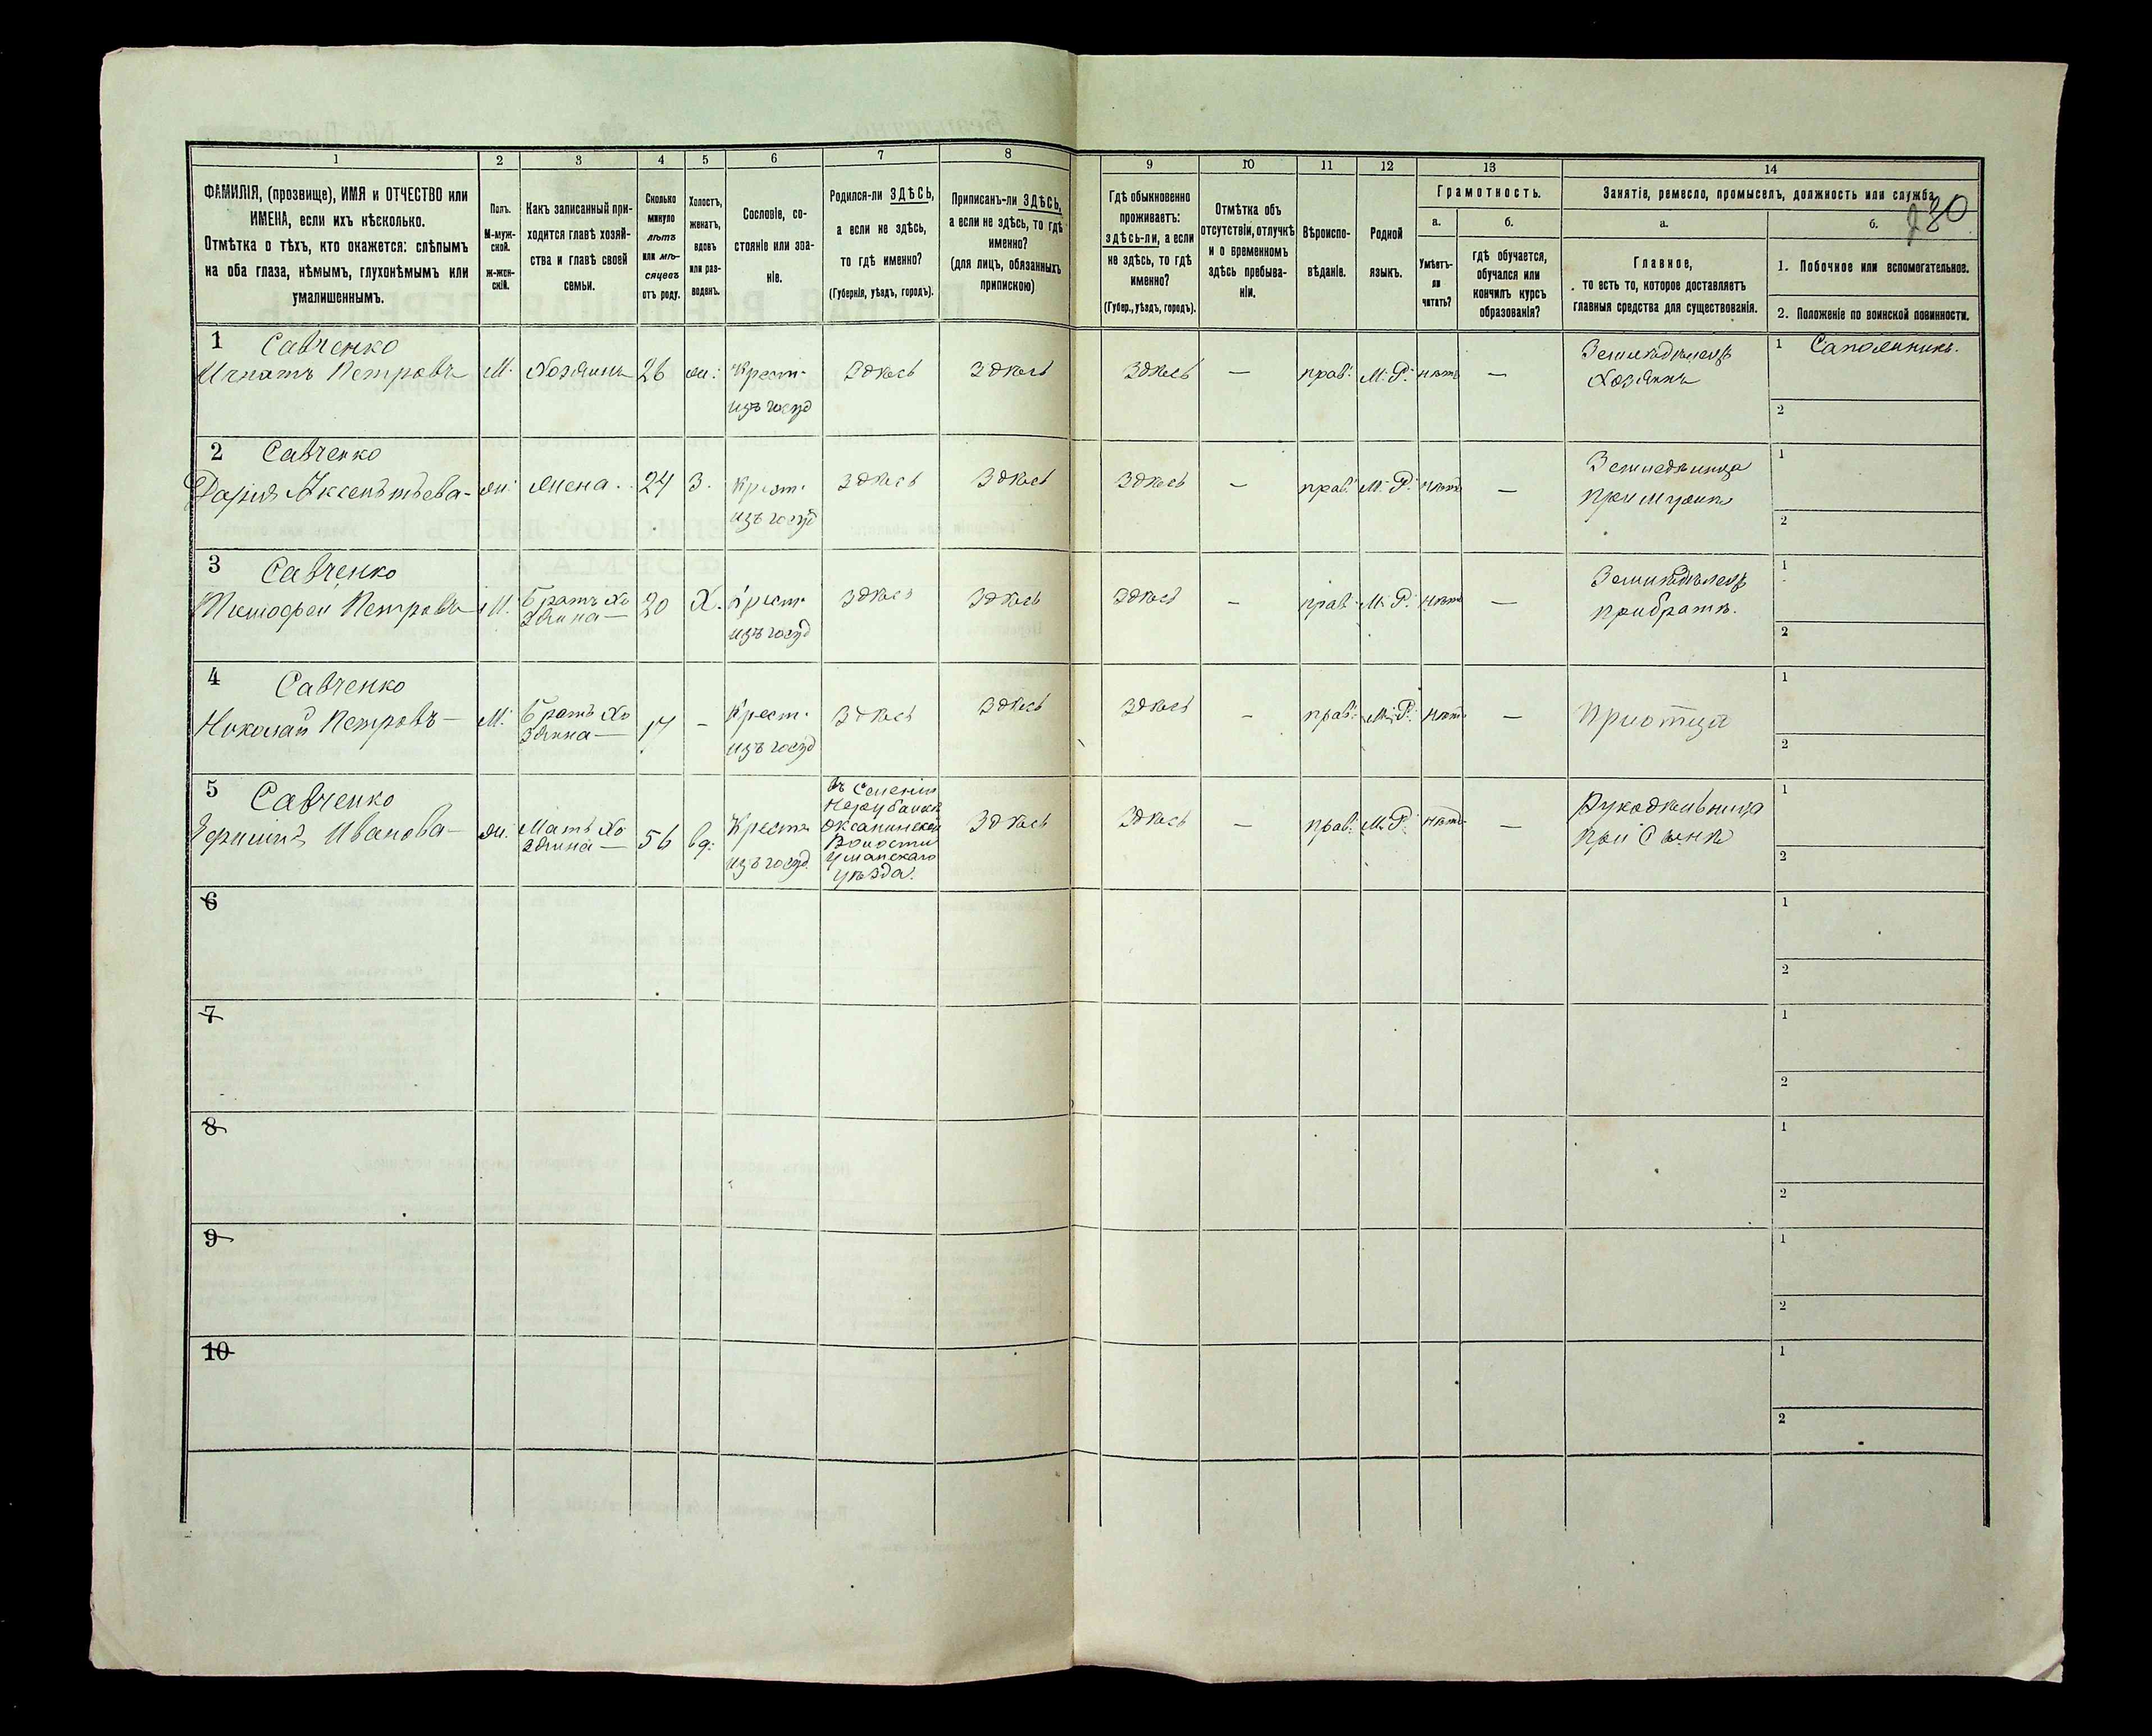 1 2 3 4 5 6 7 8 9 10 11 12 13 14
ФАМИЛІЯ, (прозвище), ИМЯ и ОТЧЕСТВО или
ИМЕНА, если ихъ нѣсколько.
Отмѣтка о тѣхъ, кто окажется: слѣпымъ
на оба глаза, нѣмымъ, глухонѣмымъ или
умалишеннымъ.
Полъ.
М-муж-
ской.
ж-жен-
скій.
Какъ записанный при-
ходится главѣ хозяй-
ства и главѣ своей
семьи.
Сколько
минуло
лѣтъ
или мѣ-
сяцевъ
отъ роду.
Холостъ,
женатъ,
вдовъ
или раз-
веденъ.
Сословіе, со-
стояніе или зва-
ніе.
Родился-ли ЗДѢСЬ,
а если не здѣсь,
то гдѣ именно?
(Губернія, уѣздъ, городъ).
Приписанъ-ли ЗДѢСЬ,
а если не здѣсь, то гдѣ
именно?
(для лицъ, обязанныхъ
припискою)
Гдѣ обыкновенно
проживаетъ:
здѣсь-ли, а если
не здѣсь, то гдѣ
именно?
(Губер., уѣздъ, городъ).
Отмѣтка объ
отсутствіи, отлучкѣ
и о временномъ
здѣсь пребыва-
ніи.
Вѣроиспо-
вѣданіе.
Родной
языкъ.
Грамотность.
а.
Умѣетъ-
ли
читать?
б.
гдѣ обучается,
обучался или
кончилъ курсъ
образованія?
Занятіе, ремесло, промыселъ, должность или служба
а.
Главное,
то есть то, которое доставляетъ
главныя средства для существованія.
б.
1. Побочное или вспомогательное.
2. Положеніе по воинской повинности.
1 Савченко
Игнатъ Петровъ М. Хозяинъ 26 Крест. Здѣсь Здѣсь Здѣсь — прав. М. Р. нѣтъ —
изъ госуд
Земледѣлецъ
Хозяинъ
1 Сапожникъ.
2
2 Савченко
Дарія Аксентьева — ж. Жена 24 З. Крест. Здѣсь Здѣсь Здѣсь — прав. М. Р. нѣтъ —
изъ госуд
при мужѣ
1
2
3 Савченко
Тимофей Петровъ М. Братъ Хо
зяина — 20 Х. Крест. Здѣсь Здѣсь Здѣсь — прав. М. Р. нѣтъ —
изъ госуд
Земледѣлецъ
при братѣ.
1
2
4 Савченко
Николай Петровъ — М. Братъ Хо
зяина — 17 — Крест. Здѣсь Здѣсь Здѣсь — прав. М. Р. нѣтъ —
изъ госуд
1
2
5 Савченко
Ивановa — ж. Мать Хо
зяина — 56 вд. Крест. Здѣсь Здѣсь — прав. М. Р. нѣтъ —
изъ госуд.
въ Селеніи
Оксанинской
Волости
Уманскаго
уѣзда.
Рукодѣльница
при Сынѣ
1
2
6
1
2
7
1
2
8
1
2
9
1
2
10
1
2